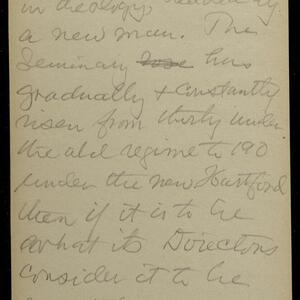 in theology, headed by
a new man. The
Seminary rose has
gradually & constantly
risen from thirty under
the old regime to 190
under the new Hartford
then if it is to be
what its Directors
consider it to be